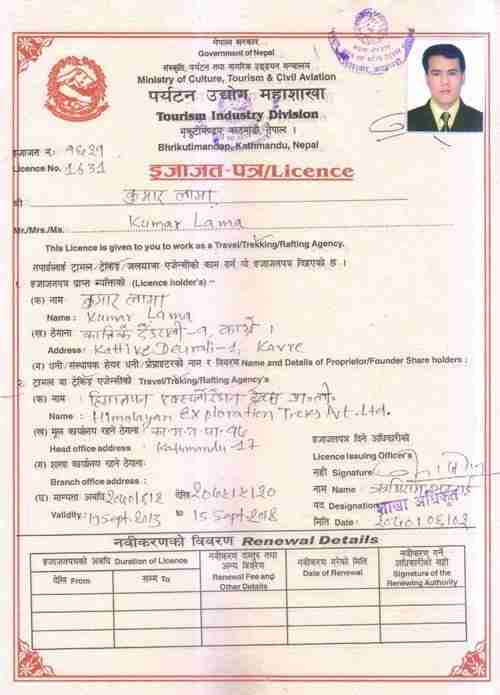 नेपाल सरकार
Government of Nepal
संस्कृति, पर्यटन तथा नागरिक उड्डयन मन्त्रालय
Ministry of Culture, Tourism & Civil Aviation
पर्यटन उद्योग महाशाखा
Tourism Industry Division
भृकुटीमण्डप, काठमाडौं, नेपाल ।
Bhrikutimandap, Kathmandu, Nepal
इजाजत नं. १६३१
Licence No. 1631
इजाजत-पत्र/Licence
श्री कुमार लामा
Mr./Mrs./Ms. Kumar Lama
This Licence is given to you to work as a Travel/Trekking/Rafting Agency.
तपाईंलाई ट्राभल/ट्रेकिङ/जलयात्रा एजेन्सीको काम गर्न यो इजाजतपत्र दिइएको छ ।
१. इजाजतपत्र प्राप्त व्यक्तिको (Licence holder's) –
(क) नाम: कुमार लामा
Name: Kumar Lama
(ख) ठेगाना
Address: Kattike Deurali-1, Kavre
(ग) धनी/संस्थापक शेयर धनी/प्रोप्राइटरको नाम र विवरण Name and Details of Proprietor/Founder Share holders:
२. ट्राभल वा ट्रेकिङ एजेन्सीको Travel/Treking/Rafting Agency's
(क) नाम : हिमालयन एक्सप्लोरेशन ट्रेक्स प्रा.ली.
Name: Himalayan Exploration Treks Pvt. Ltd.
(ख) मूल कार्यालय रहने ठेगाना: का.म.न.पा. १७
Head office address: Kathmandu-17
(ग) शाखा कार्यालय रहने ठेगाना:
Branch office address:
(घ) मान्यता अवधि
Validity: 17 Sept. 2013 to 15 Sept 2018
इजाजतपत्र दिने अधिकारीको
Licence Issuing Officer's
सही Signature
नाम Name:
पद Designation: शाखा अधिकृत
मिति Date:
नवीकरणको विवरण Renewal Details
इजाजतपत्रको अवधि Duration of Licence
देखि From
सम्म To
नवीकरण दस्तुर तथा अन्य विवरण
Renewal Fee and Other Details
नवीकरण गरेको मिति
Date of Renewal
नवीकरण गर्ने अधिकारीको सही
Signature of the Renewing Authority